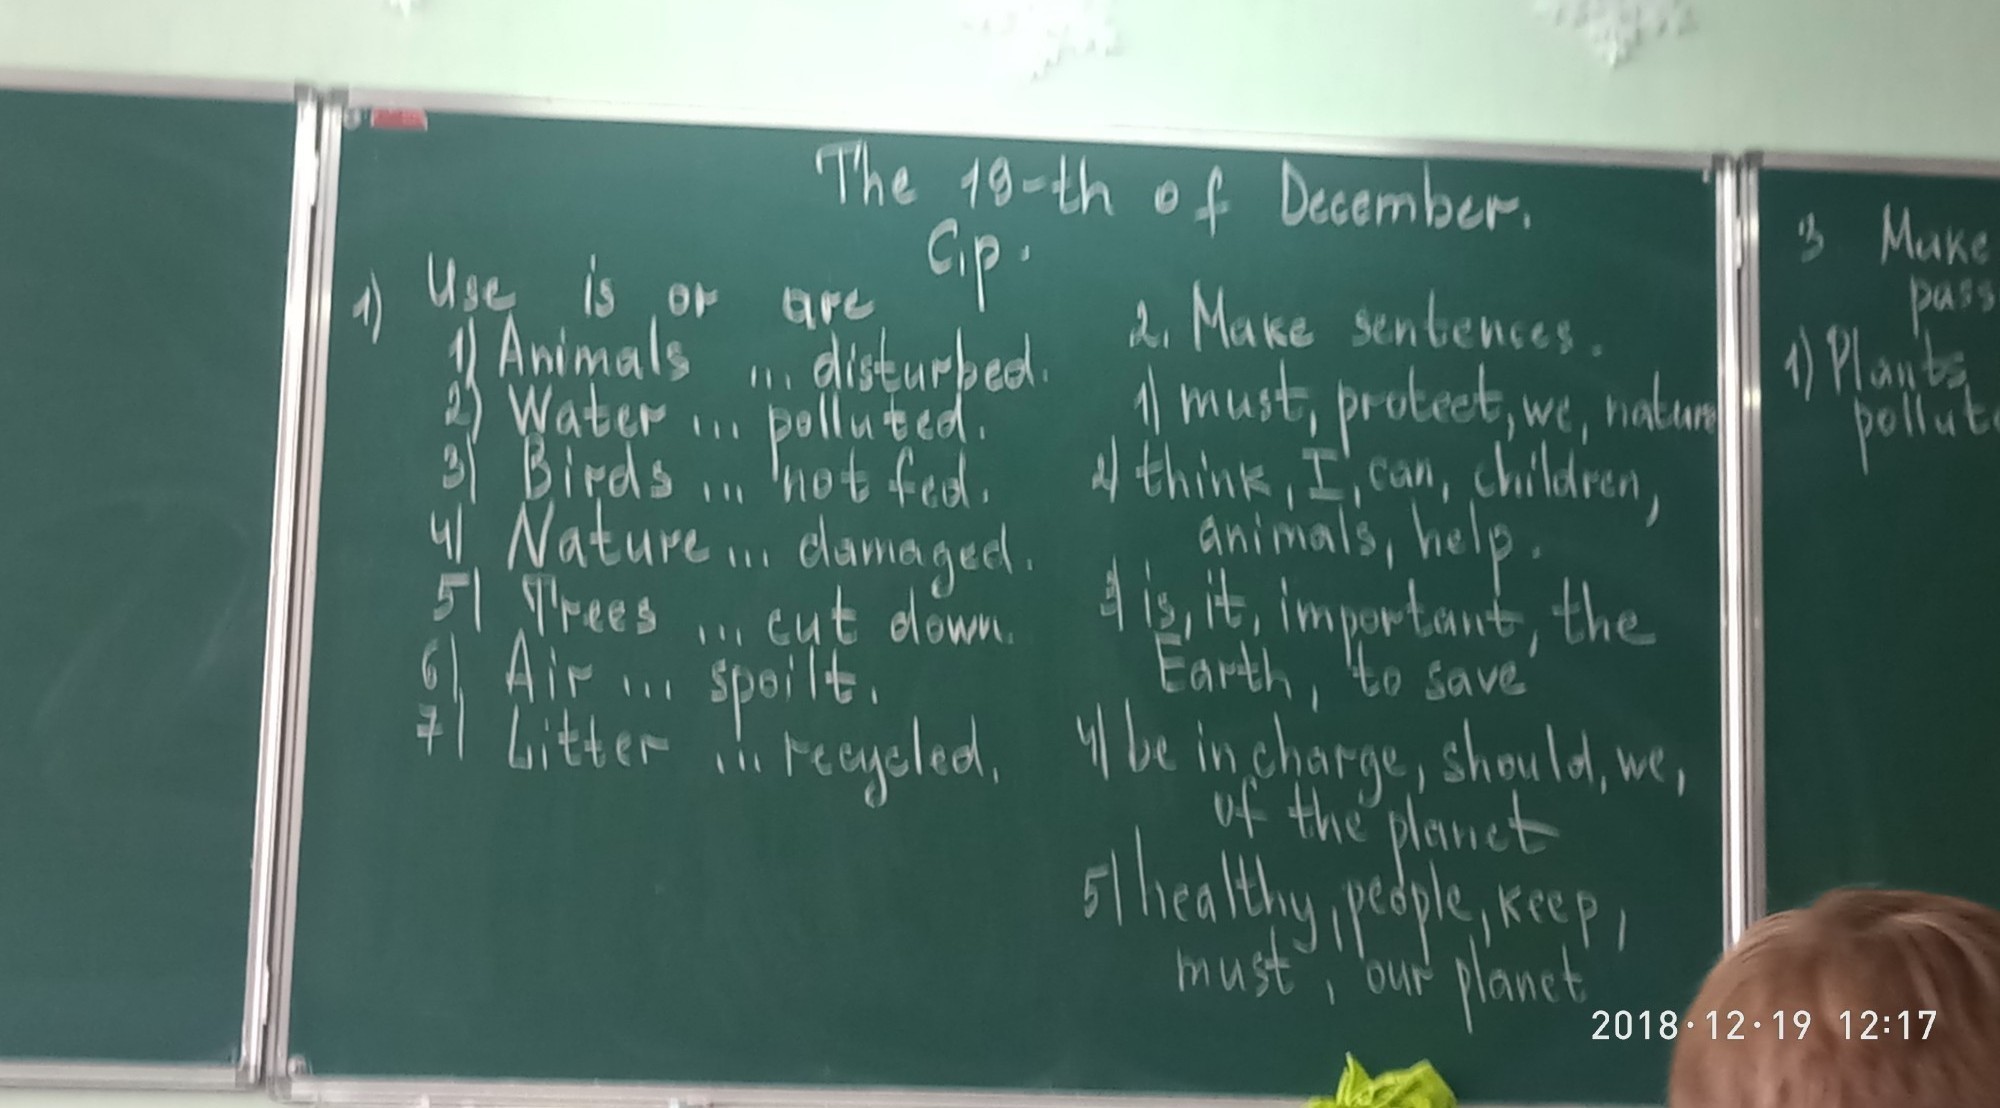 The 19-th of December.
Ср.
1) Use is or are
1) Animals ... disturbed.
2) Water ... polluted.
3) Birds ... not fed.
4) Nature ... damaged.
5) Trees ... cut down.
6) Air ... spoilt.
7) Litter ... recycled.
2. Make sentences.
1) must, protect, we, nature
2) think, I, can, children,
animals, help.
3) is, it, important, the
Earth, to save
4) be in charge, should, we,
of the planet
5) healthy, people, keep,
must, our planet
3 Make
pass
1) Plants
pollut
2018·12·19 12:17